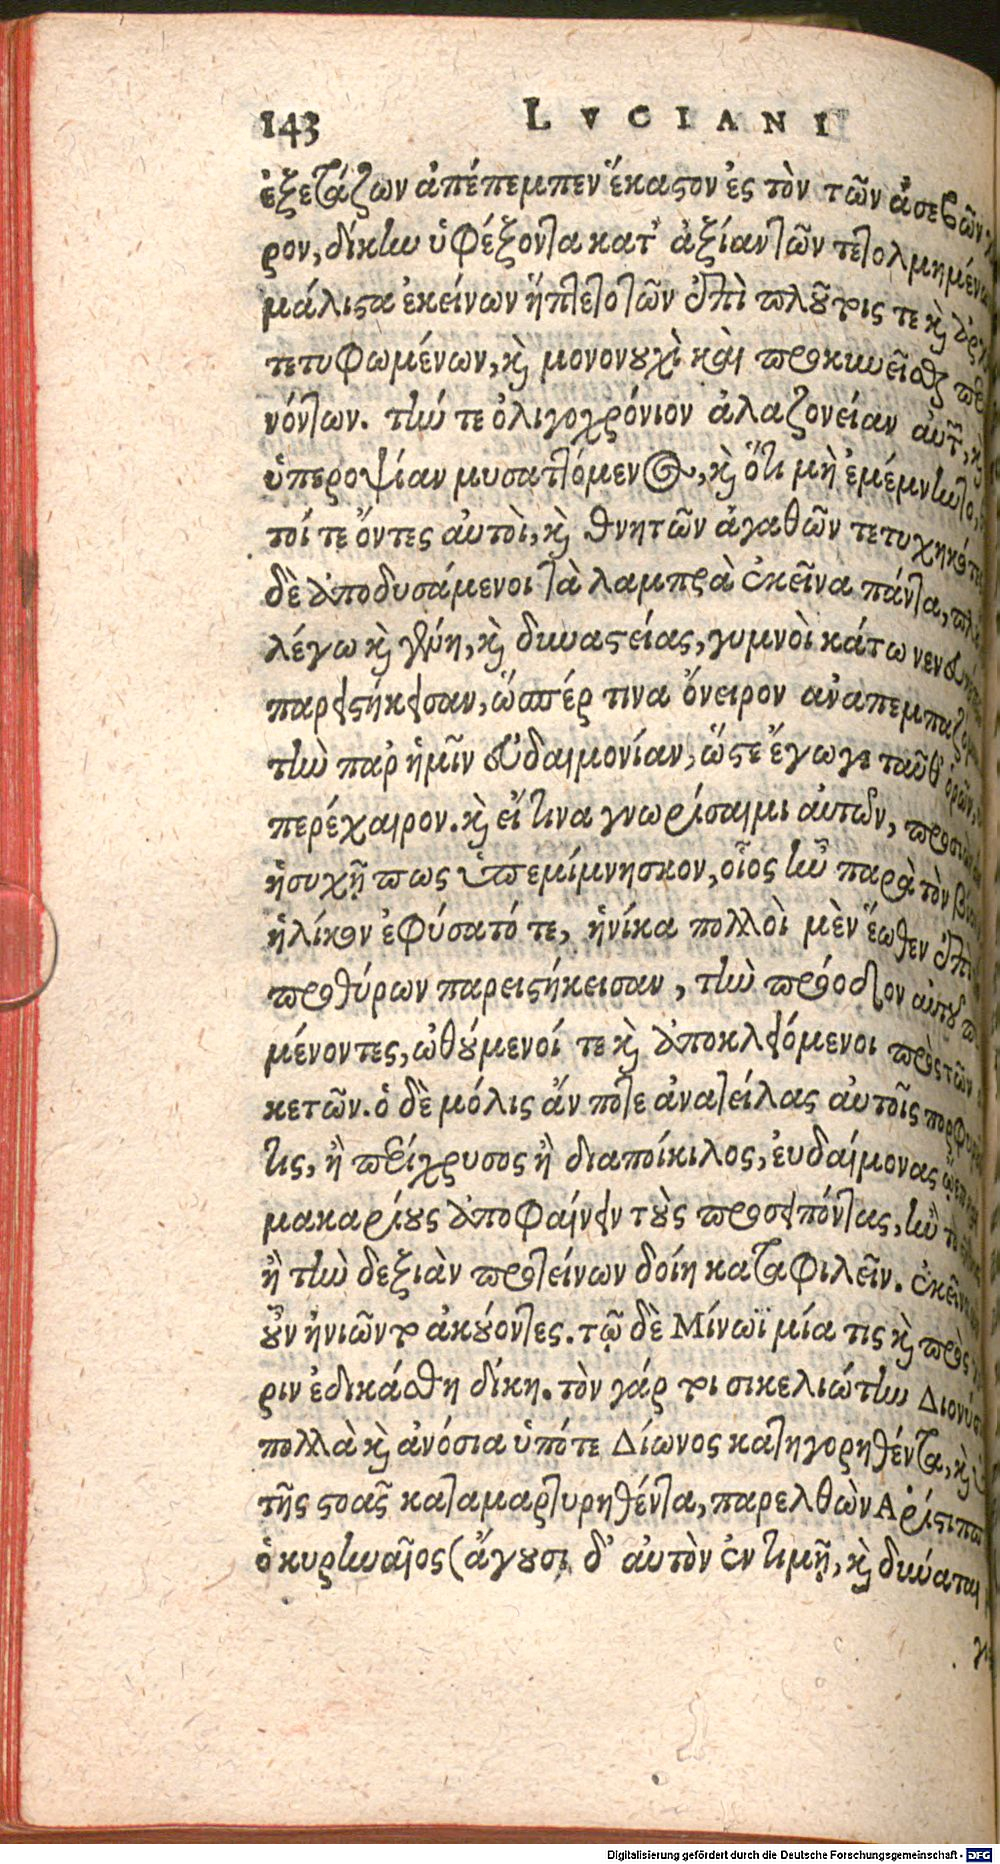 143 LVCIANI
ἐξετάζων ἀπέπεμπεν ἕκαστον ἐς τὸν τῶν ἀσεβῶν
ρον, δίκην ὑφέξοντα κατ' ἀξίαν τῶν τετολμημένων
μάλιστα ἐκείνων ἥπτετο τῶν ἐπὶ πλούτοις τε καὶ
τετυφωμένων, καὶ μονονουχὶ καὶ προσκυνεῖσθαι
νόντων. τήν τε ὀλιγοχρόνιον ἀλαζονείαν αὐτῶν, καὶ
ὑπεροψίαν μυσαττόμενος, καὶ ὅτι μὴ ἐμέμνηντο,
τοί τε ὄντες αὐτοὶ, καὶ θνητῶν ἀγαθῶν τετυχηκότες
δὲ ἀποδυσάμενοι τὰ λαμπρὰ ἐκεῖνα πάντα,
λέγω καὶ γένη, καὶ δυναστείας, γυμνοὶ κάτω νενευκότες
παρειστήκεισαν, ὥσπέρ τινα ὄνειρον ἀναπεμπαζόμενοι
τὴν παρ' ἡμῖν εὐδαιμονίαν, ὥστε ἔγωγε ταῦθ' ὁρῶν,
περέχαιρον. καὶ εἴ τινα γνωρίσαιμι αὐτῶν, προσιὼν
ἡσυχῆ πως ὑπεμίμνησκον, οἷος ἦν παρὰ τὸν βίον
ἡλίκον ἐφύσα τότε, ἡνίκα πολλοὶ μὲν ἕωθεν ἐπὶ
προθύρων παρειστήκεισαν, τὴν πρόοδον αὐτοῦ
μένοντες, ὠθούμενοί τε καὶ ἀποκλειόμενοι πρὸς τῶν
κετῶν. ὁ δὲ μόλις ἄν ποτε ἀνατείλας αὐτοῖς
τις, ἢ περίχρυσος ἢ διαποίκιλος, εὐδαίμονας ᾤετο
μακαρίους ἀποφαίνειν τοὺς προσειπόντας, ἢν τὸ
ἢ τὴν δεξιὰν προτείνων δοίη καταφιλεῖν. ἐκεῖνοι
οὖν ἠνιῶντο ἀκούοντες. τῷ δὲ Μίνωϊ μία τις καὶ πρὸς
ριν ἐδικάσθη δίκη. τὸν γάρ τοι σικελιώτην Διονύσιον
πολλὰ καὶ ἀνόσια ὑπότε Δίωνος κατηγορηθέντα, καὶ
τῆς στοᾶς καταμαρτυρηθέντα, παρελθὼν Ἀρίστιππος
ὁ κυρηναῖος (ἄγουσι δ' αὐτὸν ἐν τιμῇ, καὶ δύναται